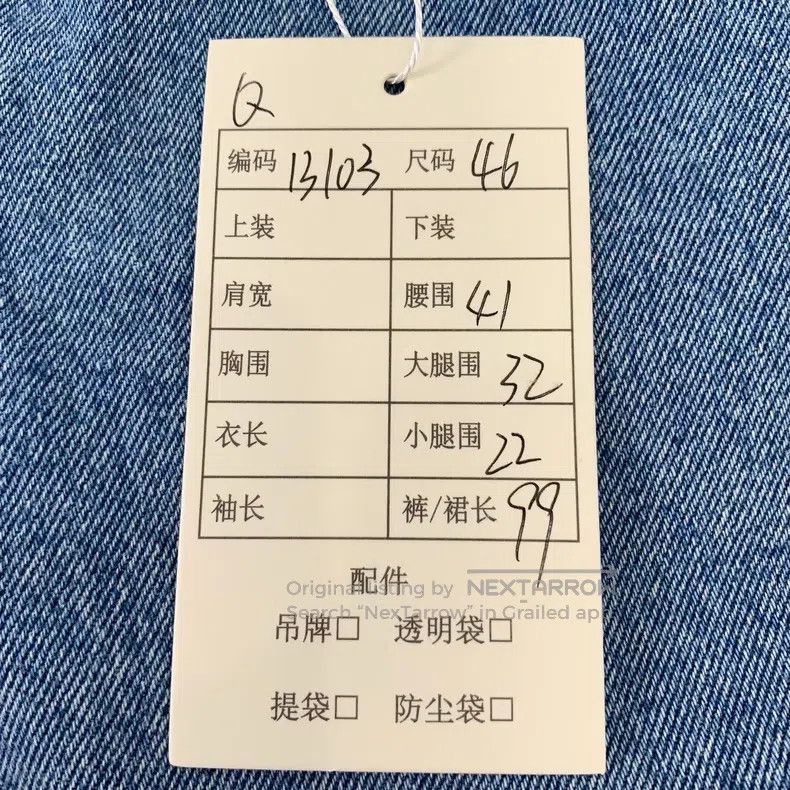 Q
编码 13103 尺码 46
上装 下装
肩宽 腰围 41
胸围 大腿围 32
衣长 小腿围 22
袖长 裤/裙长 99
配件
Original listing by NEXTARROW
Search “NexTarrow” in Grailed ap
吊牌□ 透明袋□
提袋□ 防尘袋□